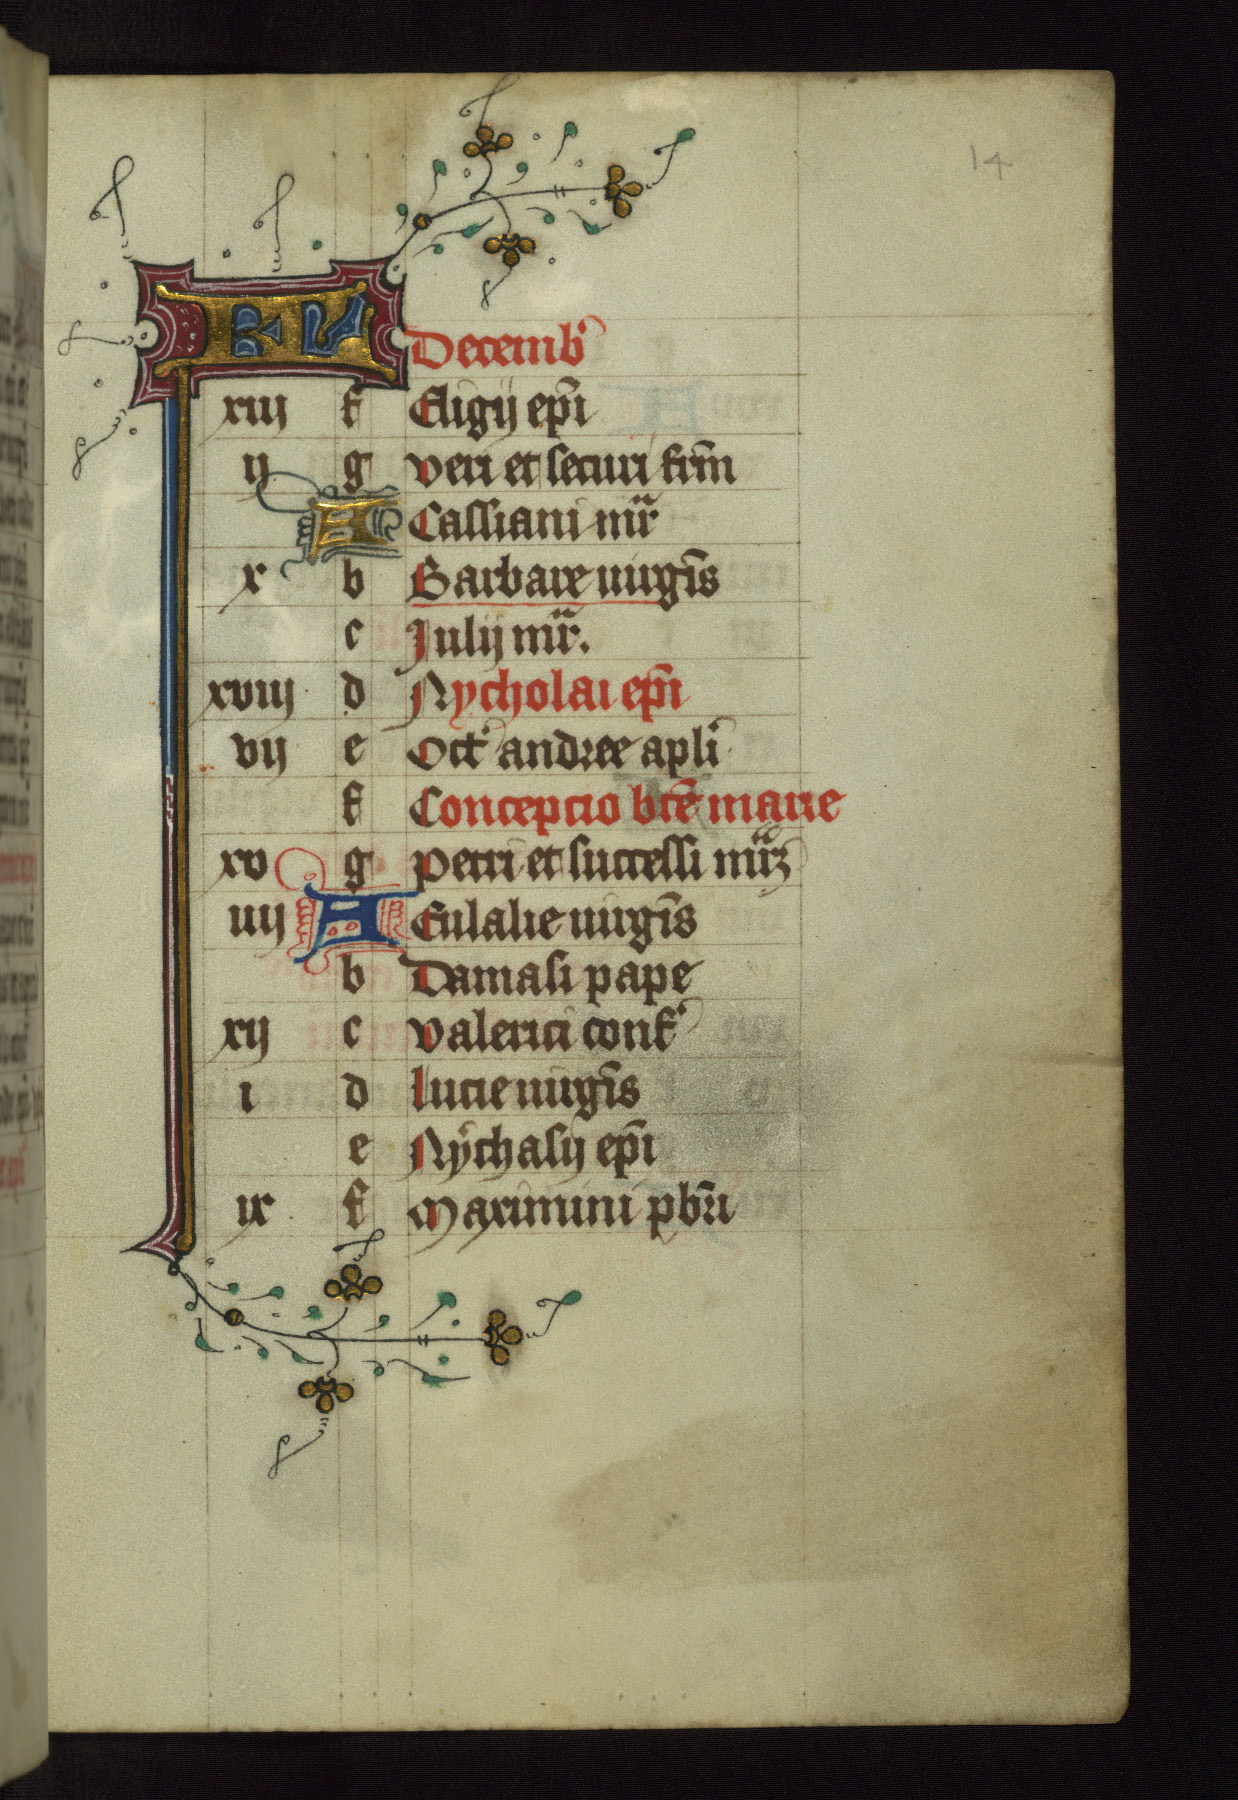 14
KL Decemb'
xiij f Eligij ep̄i
ij g Veri et securi frm̄
A Cassiani mr̄
x b Barbare uirgīs
c Julij mr̄.
xviij d Nycholai ep̄i
vij e Oct' andree apl'i
f Concepcio btē marie
xv g Petri et successi mr̄ꝫ
iiij A Eulalie uirgīs
b Damasi pape
xij c Valerici conf'
i d Lucie uirgīs
e Nychasij ep̄i
ix f Maximini pbr̄i